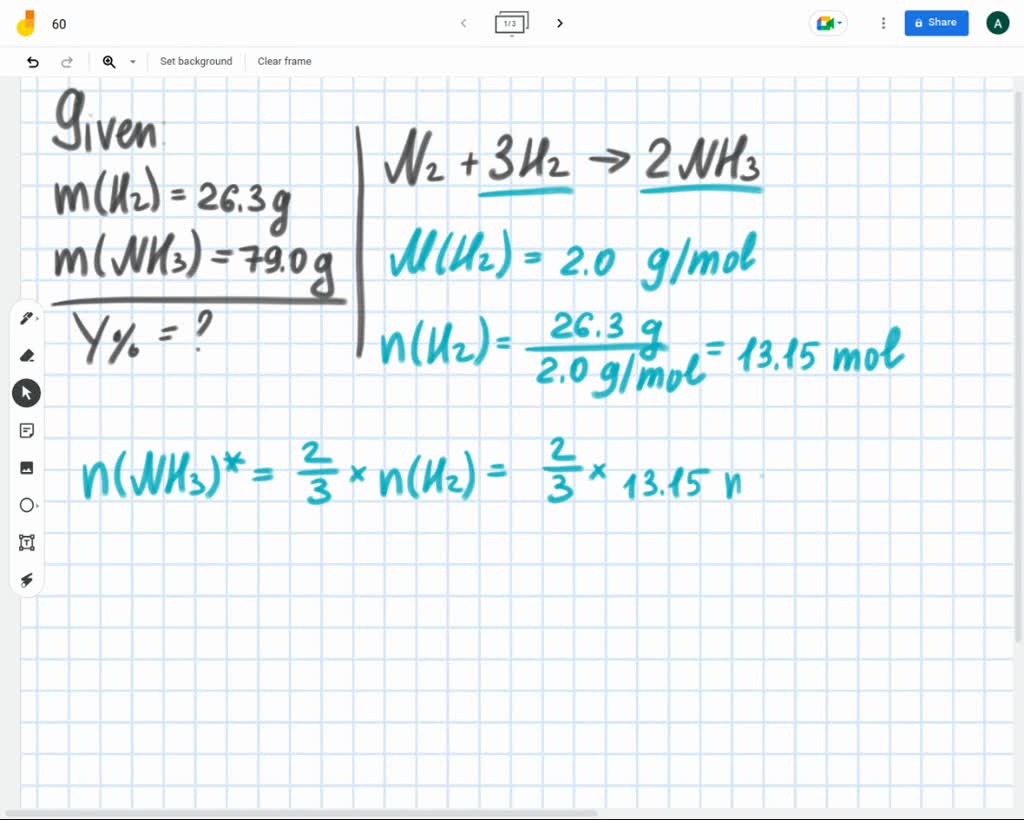 60
1/3
Share
A
Set background
Clear frame
Given:
m(H₂) = 26.3 g
m(NH₃) = 79.0 g
Y% = ?
N₂ + 3H₂ → 2NH₃
M(H₂) = 2.0 g/mol
n(H₂) = 26.3 g / 2.0 g/mol = 13.15 mol
n(NH₃)* = 2/3 × n(H₂) = 2/3 × 13.15 n